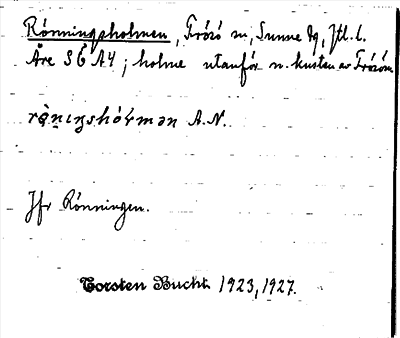 Rönningsholmen, Frösö sn, Sunne tg, Jtl. l.
Åre SÖ A4; holme utanför n. kusten av Frösön
A.N.
Jfr Rönningen.
Torsten Bucht 1923, 1927.